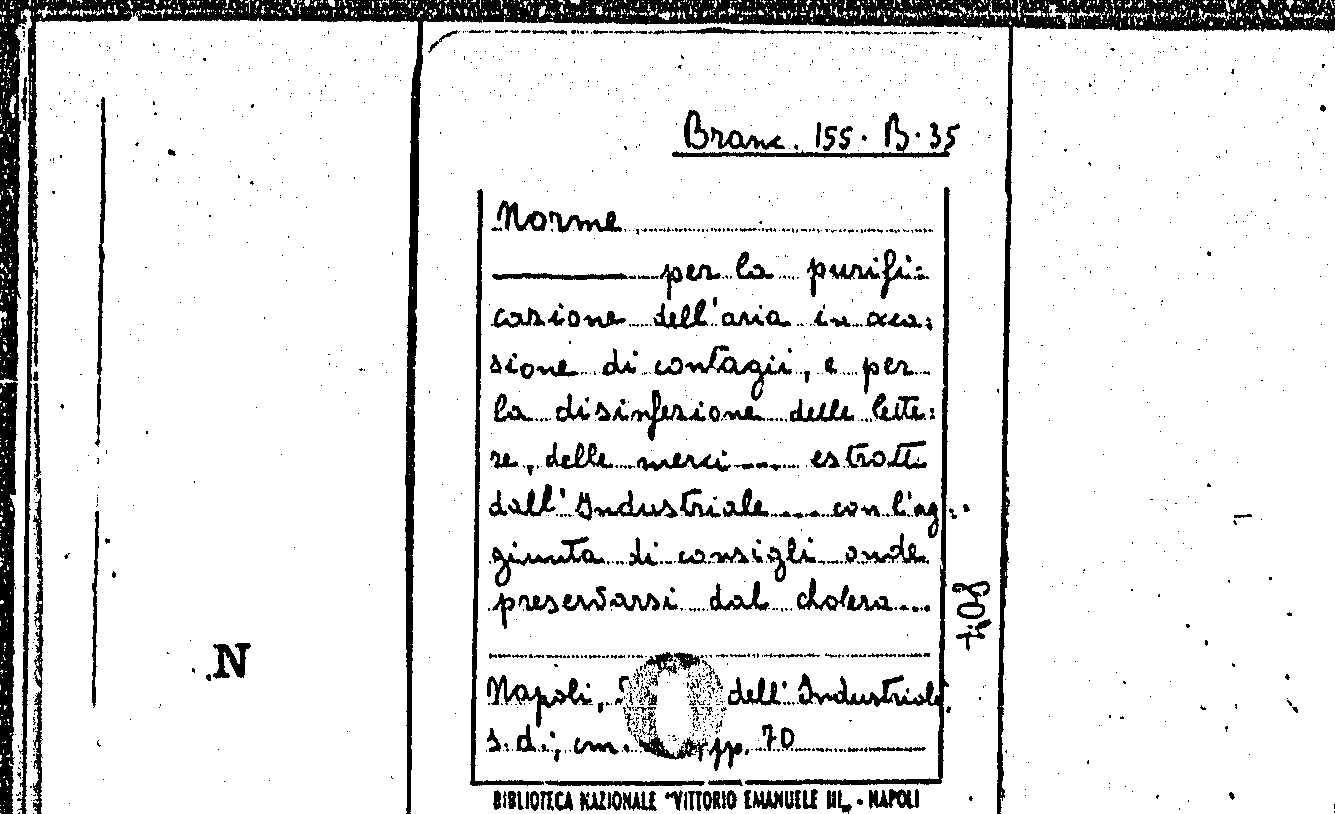 Branc. 155. B. 35
Norme
per la purifi=
cazione dell'aria in occa=
sione di contagii, e per
la disinfezione delle lette=
re, delle merci .... estratti
dall'Industriale .... con l'ag=
giunta di consigli onde
preservarsi dal cholera....
408
N
Napoli, dell'Industriale,
s.d.; cm. pp. 70
BIBLIOTECA NAZIONALE "VITTORIO EMANUELE III„ - NAPOLI